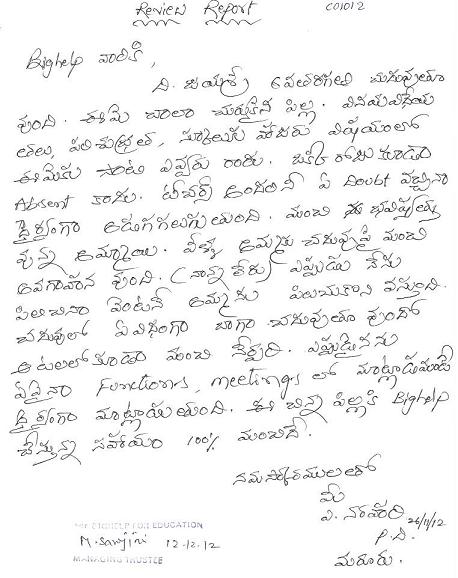 Review Report
C01012
Bighelp వారికి,
ది. జయశ్రీ 6వతరగతి చదువుతూ
వుంది. ఈమె చాలా చురుకైన పిల్ల. వినయవిధేయ
తలు, పరిశుభ్రత, స్కూలుకు హాజరు విషయంలో
ఈమెకు సాటి ఎవ్వరు రారు. ఒక్క రోజు కూడా
Absent కాదు. టీచర్స్ అందరినీ ఏ Doubt వచ్చినా
ధైర్యంగా అడుగగలుగుతుంది. మంచి భవిష్యత్తు
వున్న అమ్మాయి. వీళ్ళ అమ్మకు చదువుపై మంచి
అవగాహన వుంది. (నాన్న లేరు) ఎప్పుడు నేను
పిలచినా వెంటనే అమ్మను పిలుచుకొని వస్తుంది.
చదువులో ఏవిధంగా బాగా చదువుతూ వుందో
ఆటలలో కూడా మంచి నేర్పరి. ఎప్పుడైనను
ఏవైనా Functions, meetings లో మాట్లాడమంటే
ధైర్యంగా మాట్లాడుతుంది. ఈ చిన్న పిల్లకి Bighelp
చేస్తున్న సహాయం 100% మంచిదే.
నమస్కారములతో
మీ
వి. నరహరి 26/11/12
P.D.
మరూరు.
BIGHELP FOR EDUCATION
M. Sanjini 12-12-12
MANAGING TRUSTEE